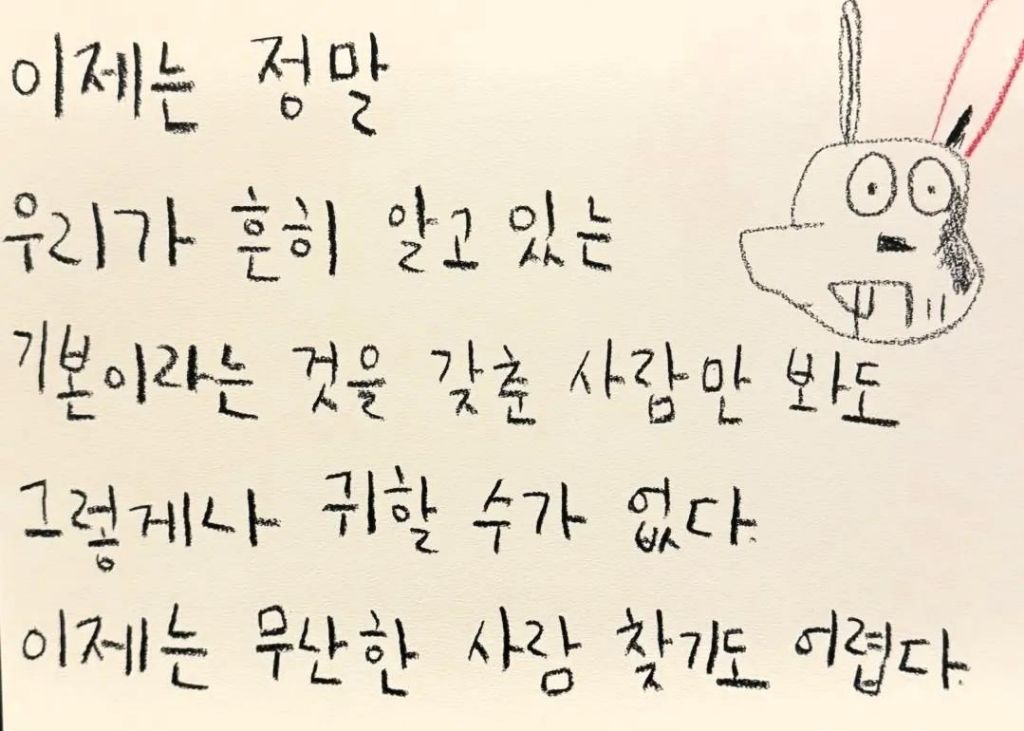 이제는 정말
우리가 흔히 알고 있는
기본이라는 것을 갖춘 사람만 봐도
그렇게나 귀할 수가 없다.
이제는 무난한 사람 찾기도 어렵다.